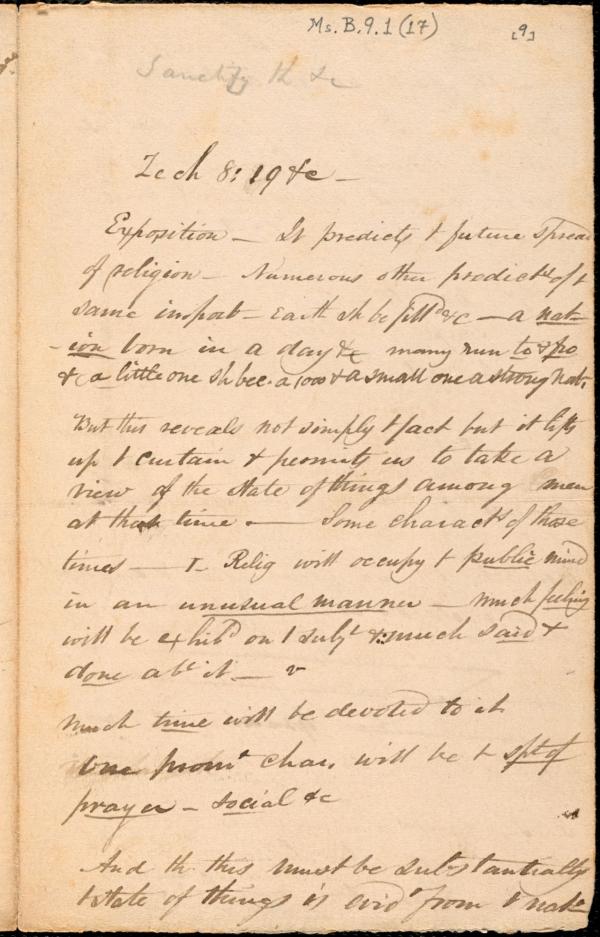 Ms. B. 9. 1 (17) [9]
Sanctify th &c
Zech 8: 19 &c —
Exposition — It predicts t future spread
of religion — Numerous other predicts of t
same import — Earth sh be filld &c — a nat-
-ion born in a day &c many run to & fro
& a little one sh bec. a 1000 & a small one a strong nat.
But this reveals not simply t fact but it lifts
up t curtain & permits us to take a
view of the state of things among men
at that time — Some characts of those
times — I — Relig will occupy t public mind
in an unusual manner — much feeling
will be exhibd on t subjt & much said &
done abt it —
Much time will be devoted to it
One promt char. will be t spt of
prayer — social &c
And th this must be substantially
t state of things is evidt from t nat-